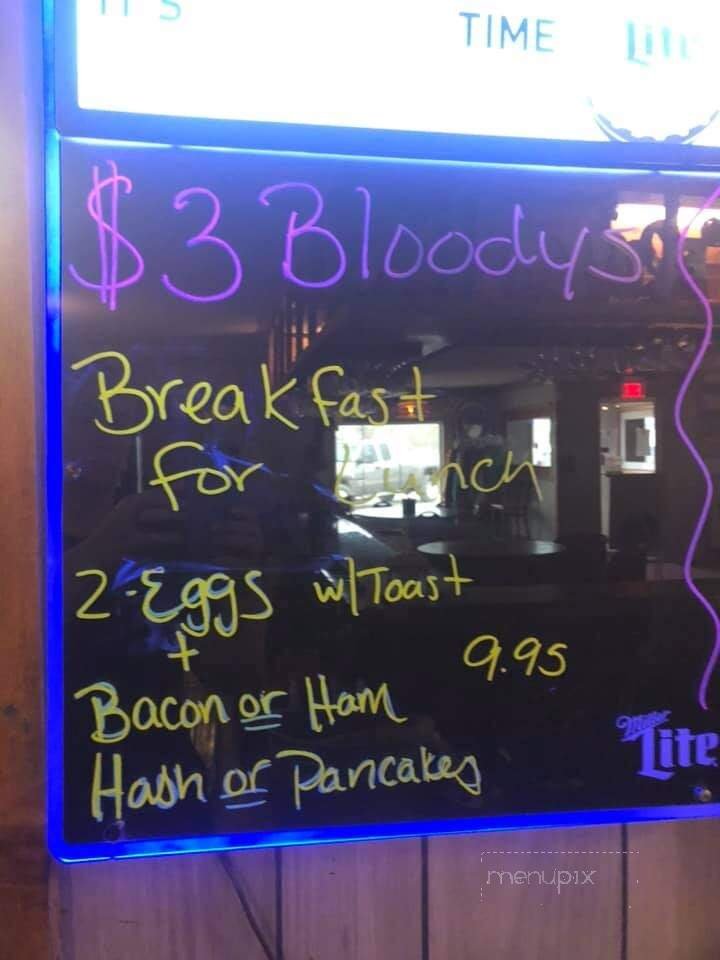 IT'S
TIME Lite
$3 Bloodys
Breakfast
for Lunch
2-Eggs w/Toast
+
9.95
Bacon or Ham
Hash or Pancakes
Miller
Lite
menupix